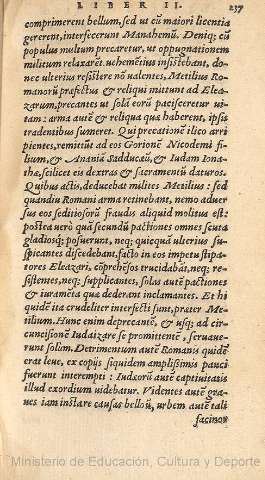 LIBER II. 237
comprimerent bellum, sed ut cū maiori licentia
gererent, interfecerunt Manahemū. Deniq; cū
populus multum precaretur, ut oppugnationem
militum relaxarēt: uehemētius insistebant, do-
nec ulterius resistere nō ualentes, Metilius Ro-
manorū præfectus & reliqui mittunt ad Elea-
zarum, precantes ut solā eorū pacisceretur ui-
tam: arma autē & reliqua quæ haberent, ipsis
tradentibus sumeret. Qui precatiōne ilico arri
pientes, remittūt ad eos Gorionē Nicodemi fi-
lium, & Ananiā Sadducæū, & Iudam Iona-
thæ, scilicet eis dextras & sacramentū daturos.
Quibus actis, deducebat milites Metilius: sed
quandiu Romani arma retinebant, nemo aduer
sus eos seditiosorū fraudis aliquid molitus est:
postea uerò quā secundū pactiones omnes scuta
gladiosq; posuerunt, neq; quicquā ulterius su-
spicantes discedebant, facto in eos impetu stipa-
tores Eleazari, cōprehēsos trucidabāt, neq; re-
sistentes, neq; supplicantes, solas autē pactiones
& iuramēta qua dederant inclamantes. Et hi
quidē ita crudeliter interfecti sunt, præter Me-
tilium. Hunc enim deprecantē, & usq; ad cir-
cuncisionē Iudaizare se promittentē, seruaue-
runt solum. Detrimentum autē Romanis quidē
erat leue, ex copijs siquidem amplissimis pauci
fuerunt interempti: Iudæorū autē captiuitatis
illud exordium uidebatur. Videntes autē gra-
ues iam instare causas belloū, urbem autē tali
facinor
Ministerio de Educación, Cultura y Deporte